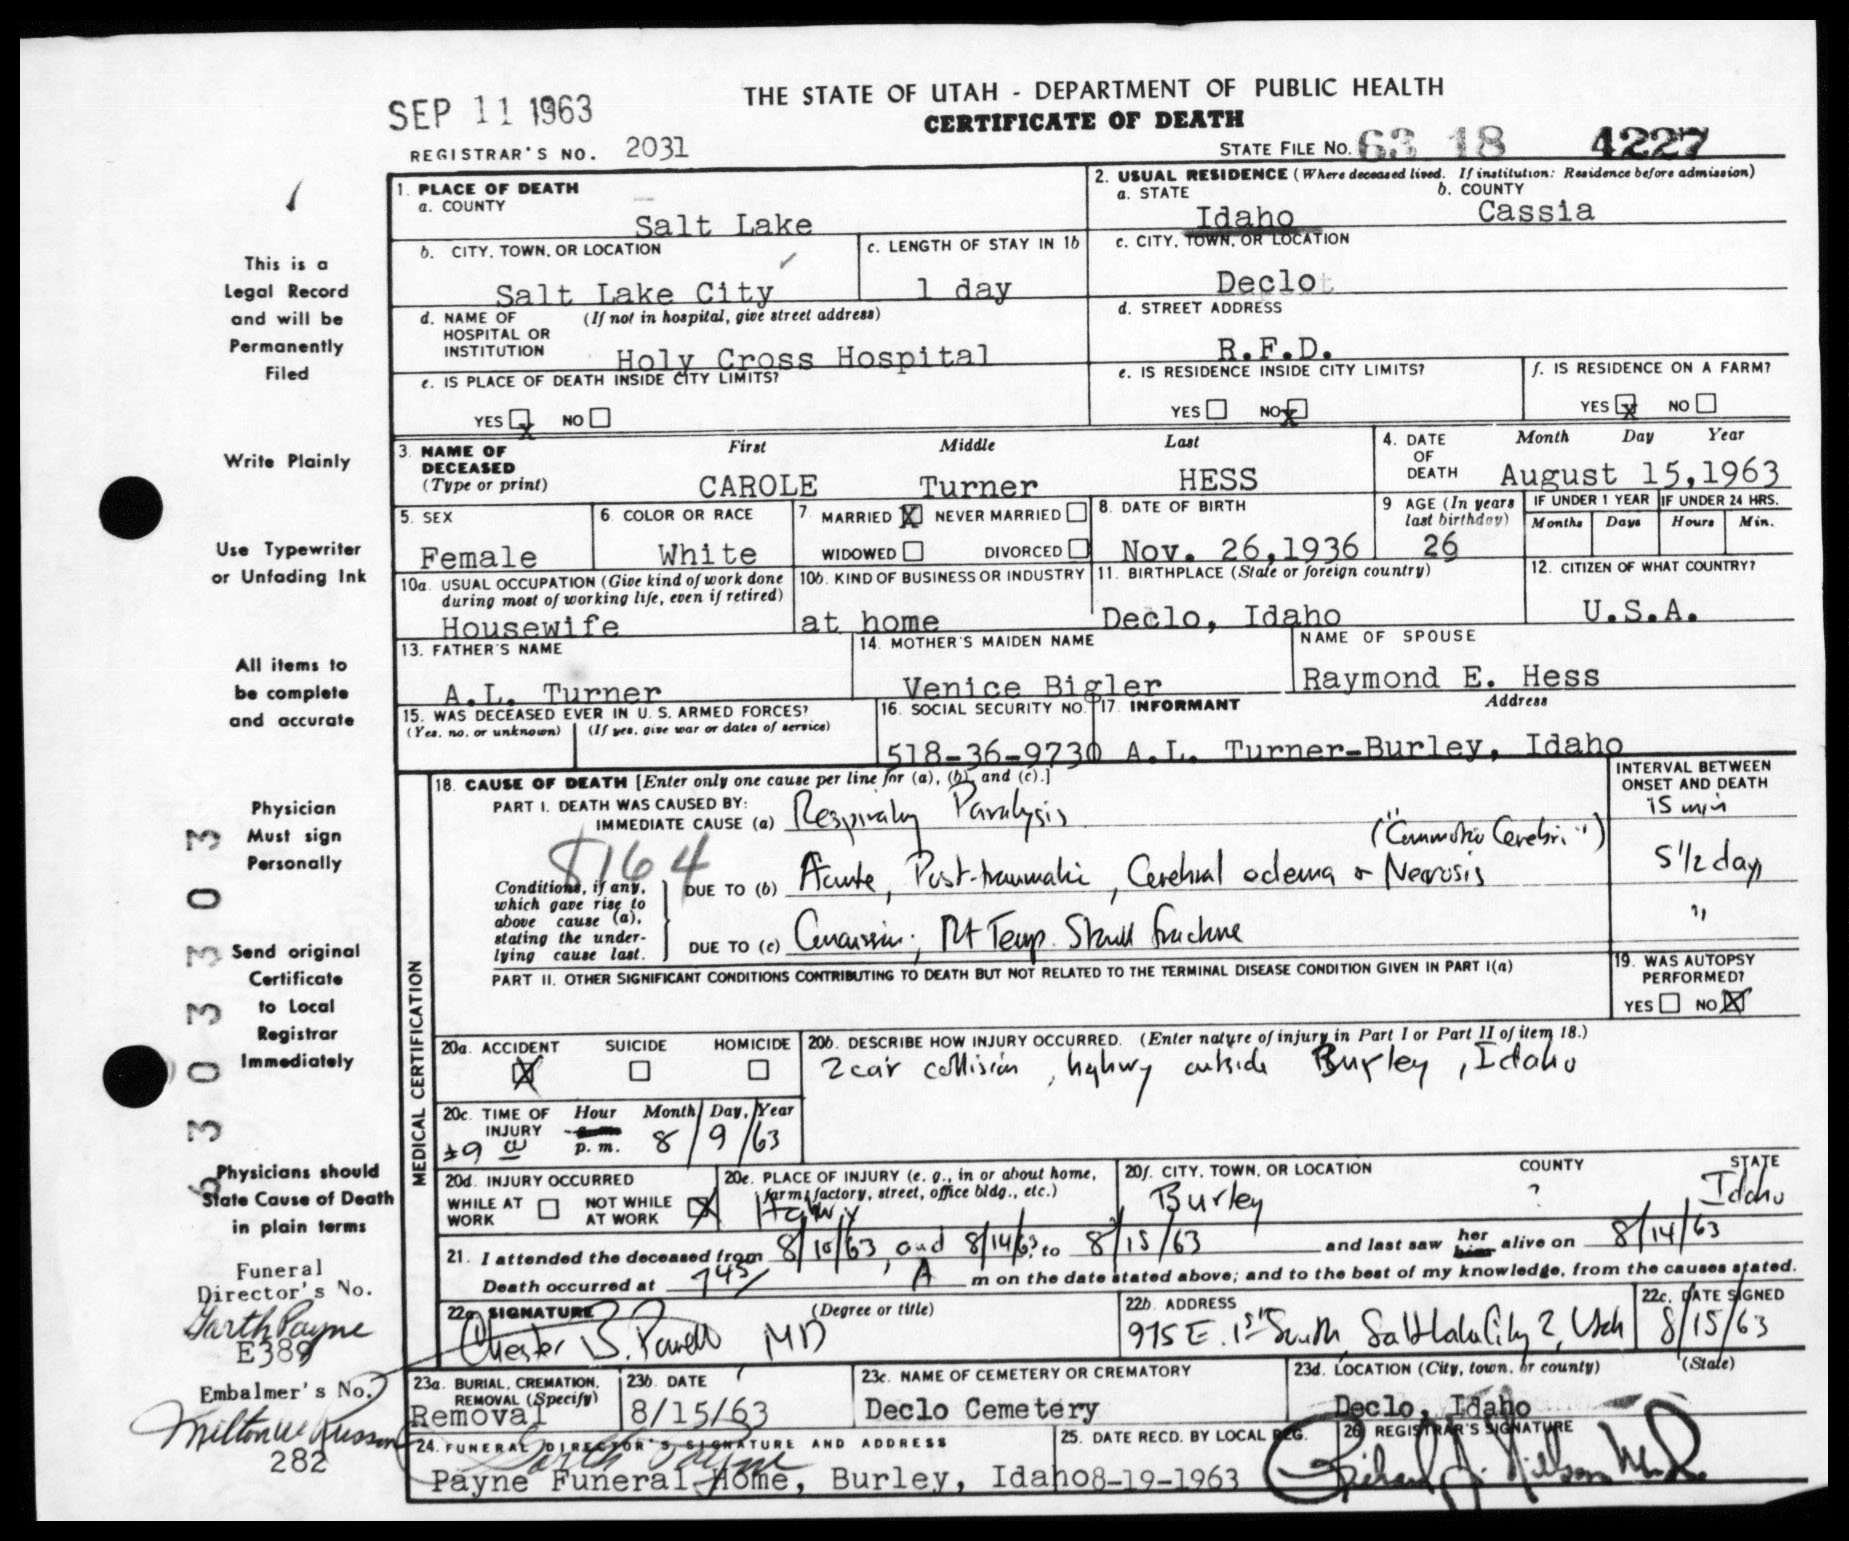 THE STATE OF UTAH - DEPARTMENT OF PUBLIC HEALTH
SEP 11 1963
CERTIFICATE OF DEATH
REGISTRAR'S NO. 2031
STATE FILE NO. 63 18 4227
1. PLACE OF DEATH
a. COUNTY
Salt Lake
2. USUAL RESIDENCE (Where deceased lived. If institution: Residence before admission)
a. STATE b. COUNTY
Idaho Cassia
b. CITY, TOWN, OR LOCATION
Salt Lake City
c. LENGTH OF STAY IN 1b
1 day
c. CITY, TOWN, OR LOCATION
Declo
d. NAME OF (If not in hospital, give street address)
HOSPITAL OR
INSTITUTION Holy Cross Hospital
d. STREET ADDRESS
R.F.D.
e. IS PLACE OF DEATH INSIDE CITY LIMITS?
YES X NO
e. IS RESIDENCE INSIDE CITY LIMITS?
YES NO X
f. IS RESIDENCE ON A FARM?
YES X NO
3. NAME OF DECEASED (Type or print)
First Middle Last
CAROLE Turner HESS
4. DATE OF DEATH
Month Day Year
August 15,1963
5. SEX
Female
6. COLOR OR RACE
White
7. MARRIED X NEVER MARRIED
WIDOWED DIVORCED
8. DATE OF BIRTH
Nov. 26,1936
9 AGE (In years
last birthday)
26
IF UNDER 1 YEAR IF UNDER 24 HRS.
Months Days Hours Min.
10a. USUAL OCCUPATION (Give kind of work done
during most of working life, even if retired)
Housewife
10b. KIND OF BUSINESS OR INDUSTRY
at home
11. BIRTHPLACE (State or foreign country)
Declo, Idaho
12. CITIZEN OF WHAT COUNTRY?
U.S.A.
13. FATHER'S NAME
A.L. Turner
14. MOTHER'S MAIDEN NAME
Venice Bigler
NAME OF SPOUSE
Raymond E. Hess
15. WAS DECEASED EVER IN U. S. ARMED FORCES?
(Yes, no, or unknown) (If yes, give war or dates of service)
16. SOCIAL SECURITY NO.
518-36-9730
17. INFORMANT Address
A.L. Turner-Burley, Idaho
MEDICAL CERTIFICATION
18. CAUSE OF DEATH [Enter only one cause per line for (a), (b), and (c).]
INTERVAL BETWEEN
ONSET AND DEATH
PART I. DEATH WAS CAUSED BY:
IMMEDIATE CAUSE (a) Respiratory Paralysis
15 min
("Commotio Cerebri")
8164
Conditions, if any,
which gave rise to
above cause (a),
stating the under-
lying cause last.
DUE TO (b) Acute, Post-traumatic, Cerebral edema & Necrosis
5 1/2 days
DUE TO (c) Concussion; Rt Temp. Skull fracture
"
PART II. OTHER SIGNIFICANT CONDITIONS CONTRIBUTING TO DEATH BUT NOT RELATED TO THE TERMINAL DISEASE CONDITION GIVEN IN PART I(a)
19. WAS AUTOPSY
PERFORMED?
YES NO X
20a. ACCIDENT SUICIDE HOMICIDE
X
20b. DESCRIBE HOW INJURY OCCURRED. (Enter nature of injury in Part I or Part II of item 18.)
2 car collision, highwy outside Burley, Idaho
20c. TIME OF INJURY Hour Month Day, Year
±9 p. m. 8/9/63
20d. INJURY OCCURRED
WHILE AT WORK NOT WHILE AT WORK X
20e. PLACE OF INJURY (e. g., in or about home,
farm, factory, street, office bldg., etc.)
20f. CITY, TOWN, OR LOCATION COUNTY STATE
Burley ? Idaho
21. I attended the deceased from 8/10/63, and 8/14/63 to 8/15/63 and last saw her him alive on 8/14/63
Death occurred at 745 A m on the date stated above; and to the best of my knowledge, from the causes stated.
22a. SIGNATURE (Degree or title)
Chester B. Powell MD
22b. ADDRESS
975 E. 1st South, Salt Lake City 2, Utah
22c. DATE SIGNED
8/15/63
23a. BURIAL, CREMATION,
REMOVAL (Specify)
Removal
23b. DATE
8/15/63
23c. NAME OF CEMETERY OR CREMATORY
Declo Cemetery
23d. LOCATION (City, town, or county) (State)
Declo, Idaho
24. FUNERAL DIRECTOR'S SIGNATURE AND ADDRESS
Garth Payne
Payne Funeral Home, Burley, Idaho
25. DATE RECD. BY LOCAL REG.
8-19-1963
26 REGISTRAR'S SIGNATURE
This is a
Legal Record
and will be
Permanently
Filed
Write Plainly
Use Typewriter
or Unfading Ink
All items to
be complete
and accurate
Physician
Must sign
Personally
Send original
Certificate
to Local
Registrar
Immediately
Physicians should
State Cause of Death
in plain terms
Funeral
Director's No.
Garth Payne
E389
Embalmer's No.
Milton W Russon
282
6 3 0 3 3 0 3